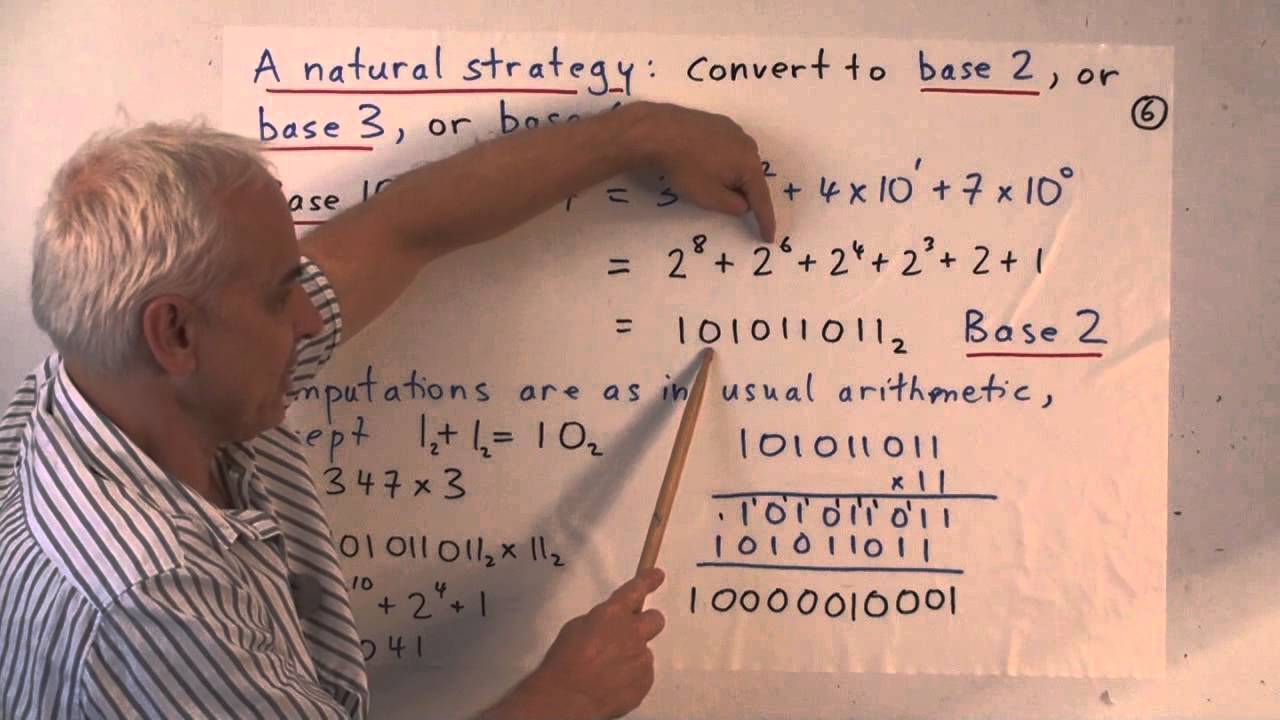 A natural strategy: convert to base 2, or
⑥
base 3, or
= + 4 × 10¹ + 7 × 10⁰
= 2⁸ + 2⁶ + 2⁴ + 2³ + 2 + 1
= 101011011₂ Base 2
are as in usual arithmetic,
1₂ + 1₂ = 10₂
347 × 3
01011011₂ × 11₂
10 + 2⁴ + 1
041
101011011
× 11
101011011
101011011
10000010001